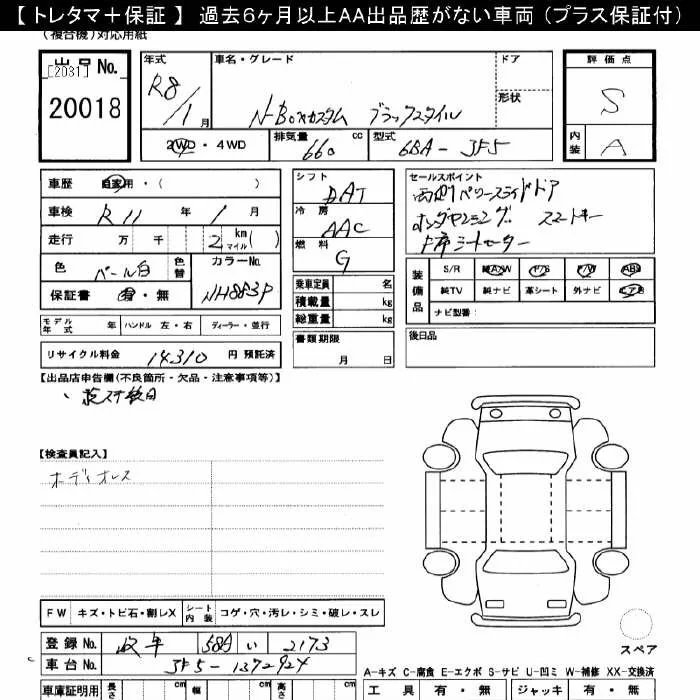 【トレタマ＋保証】 過去6ヶ月以上AA出品歴がない車両（プラス保証付）
（複合機）対応用紙
出品 No.
[2031]
20018
年式
R8/1月
車名・グレード
N-BOXカスタム ブラックスタイル
ドア
形状
2WD・4WD
排気量 660 cc
型式 6BA-JF5
評価点
S
内装 A
車歴 自家用・( )
車検 R11年1月
走行 万 千 2 km マイル( )
色 パール白 色替
カラーNo. NH883P
保証書 有・無
シフト DAT
冷房 AAC
燃料 G
乗車定員 名
積載量 kg
総重量 kg
セールスポイント
両側パワースライドドア
ホンダセンシング スマートキー
前席シートヒーター
装備品 S/R 純A/W P/S P/W ABS
純TV 純ナビ 革シート 外ナビ
ナビ型番：
モデル年式 年 ハンドル 左・右 ディーラー・並行
書類期限
月 日
後日品
リサイクル料金 14310 円 預託済
【出品店申告欄(不良箇所・欠品・注意事項等)】
【検査員記入】
ホディオレス
FW キズ・トビ石・割レX シート内装 コゲ・穴・汚レ・シミ・破レ・スレ
登録No. 岐阜 581 い 2173
車台No. JF5-1372924
スペア
A-キズ C-腐食 E-エクボ S-サビ U-凹ミ W-補修 XX-交換済
車庫証明用 長さ cm 幅 cm 高さ cm
工具 有・無 ジャッキ 有・無